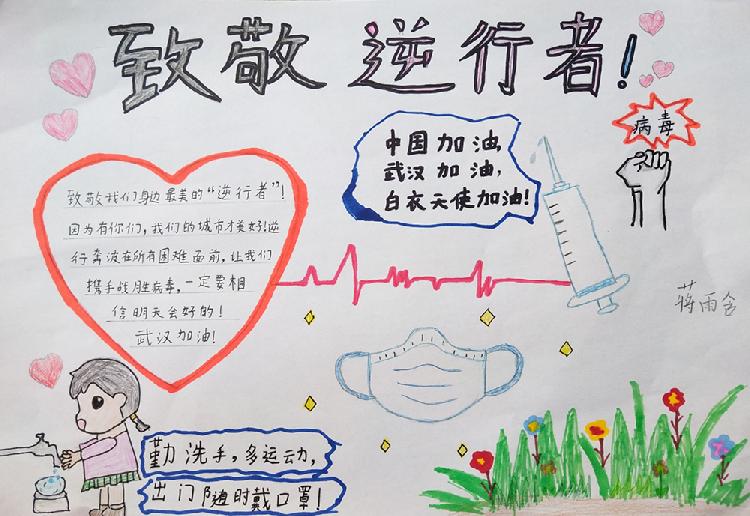 致敬 逆行者!
病毒
中国加油,
武汉加油,
白衣天使加油!
致敬我们身边最美的“逆行者”!
因为有你们,我们的城市才美好!逆
行奔波在所有困难面前,让我们
携手战胜病毒,一定要相
信明天会好的!
武汉加油!
蒋雨含
勤洗手,多运动,
出门随时戴口罩!